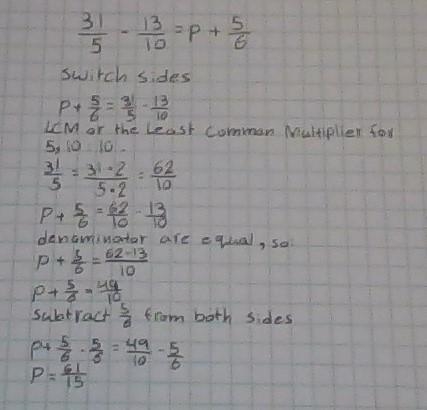 31/5 - 13/10 = p + 5/6
switch sides
p + 5/6 = 31/5 - 13/10
LCM or the Least Common Multiplier for
5,10 : 10.
31/5 = 31·2/5·2 = 62/10
p + 5/6 = 62/10 - 13/10
denominator are equal, so:
p + 5/6 = 62-13/10
p + 5/6 = 49/10
subtract 5/6 from both sides
p + 5/6 - 5/6 = 49/10 - 5/6
p = 61/15